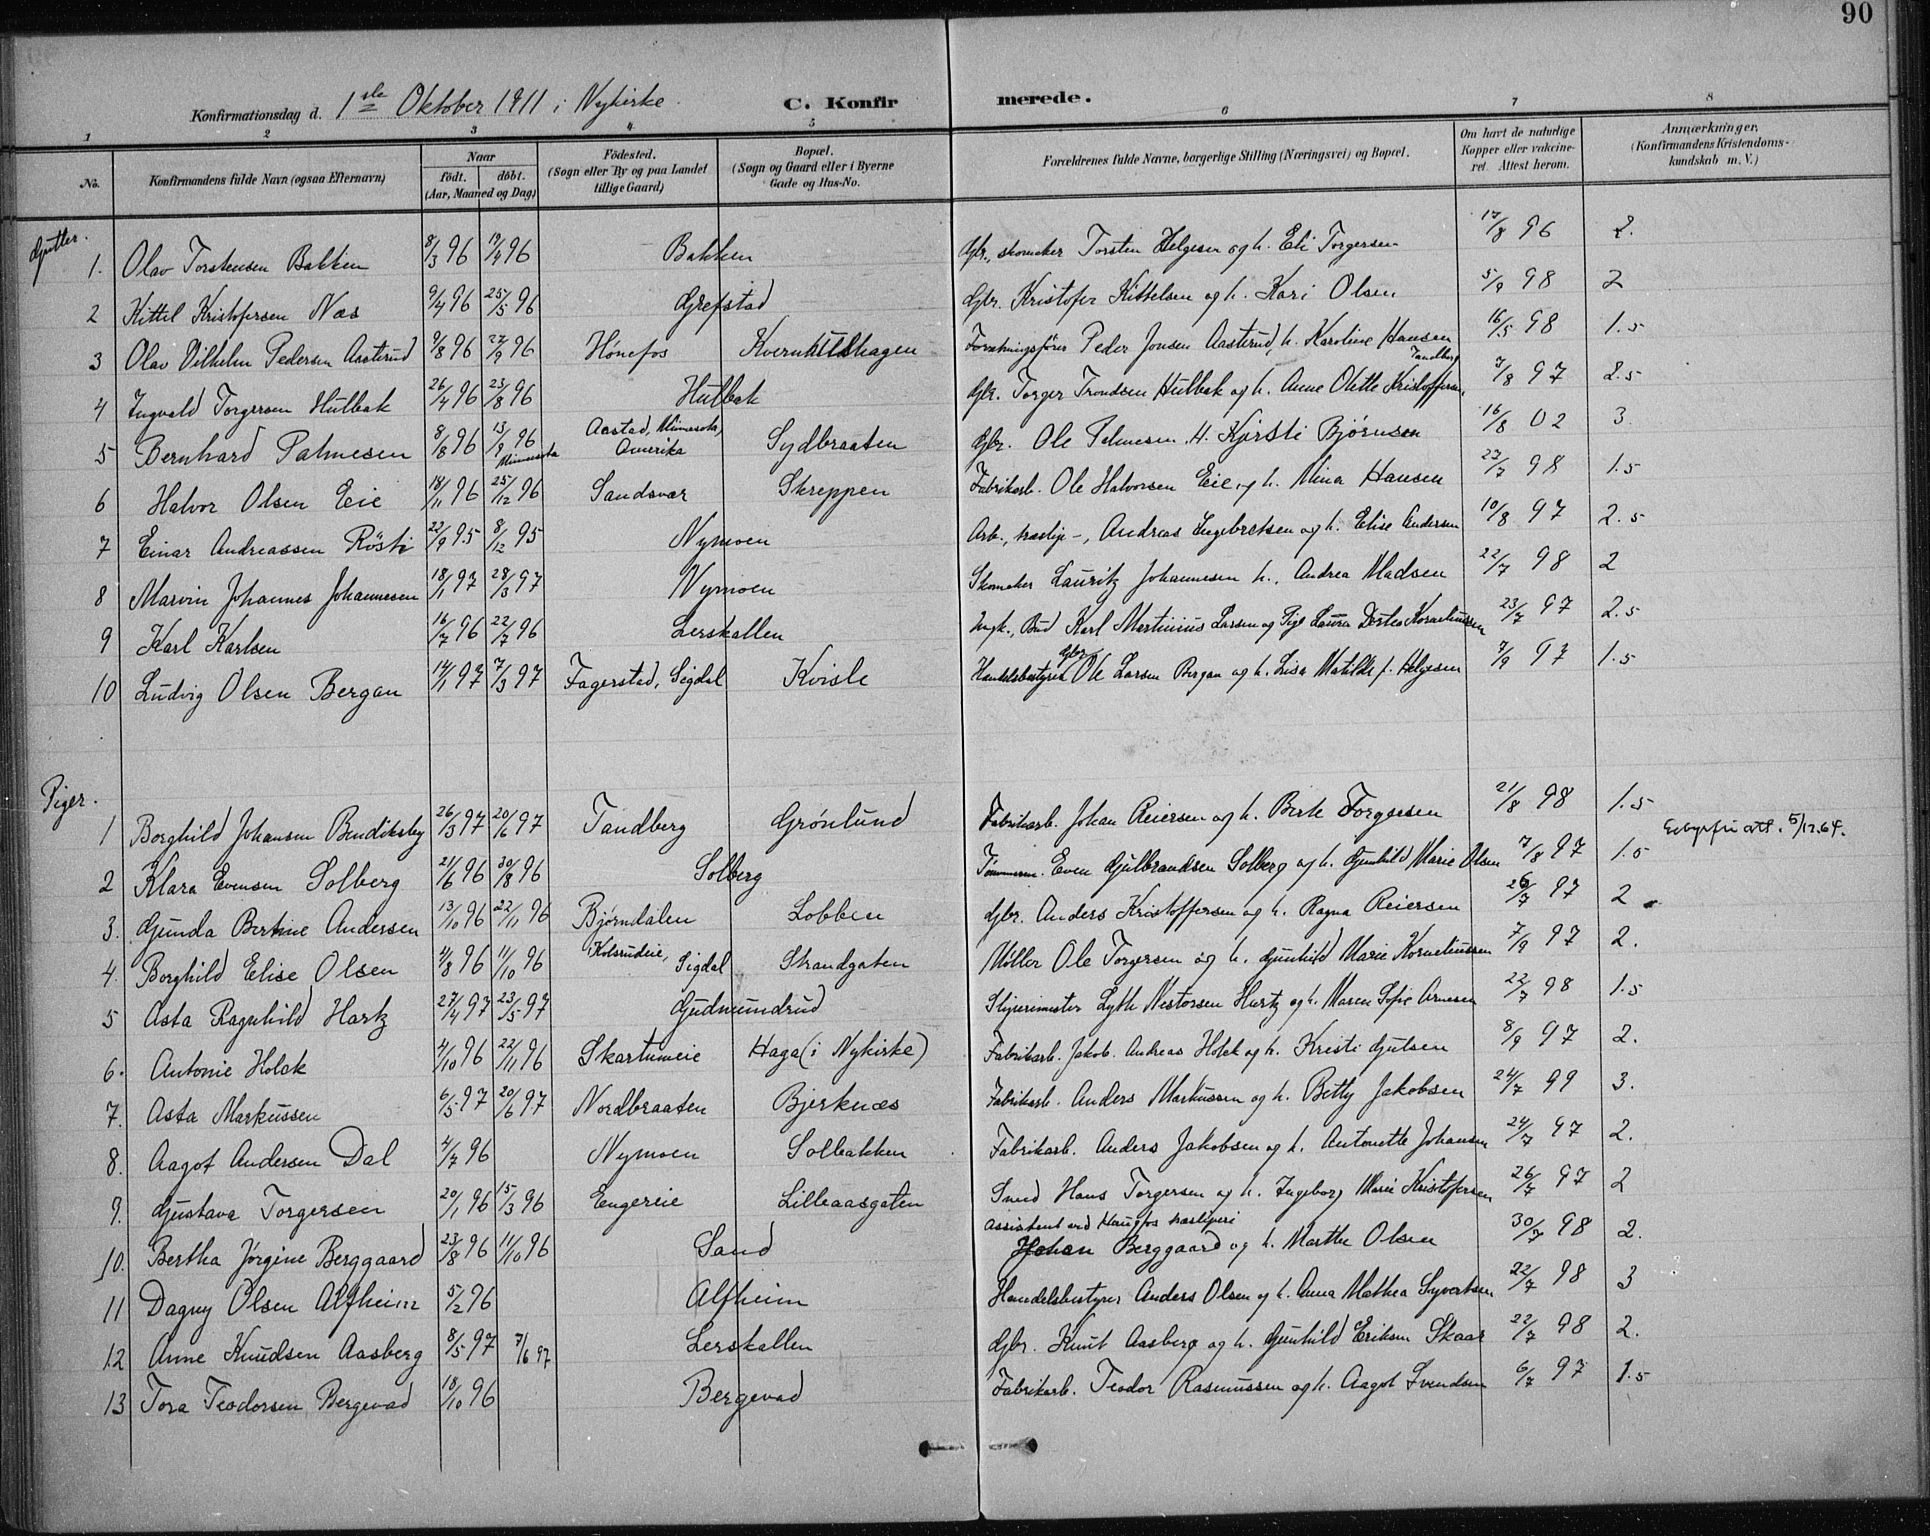 90
Konfirmationsdag d. 1ste Oktober 1911 i Nykirke. C. Konfirmerede.
1 2 3 4 5 6 7 8
No. Konfirmandens fulde Navn (ogsaa Efternavn) Naar født. døbt. (Aar, Maaned og Dag) Fødested. (Sogn eller By og paa Landet tillige Gaard) Bopæl. (Sogn og Gaard eller i Byerne Gade og Hus-No. Forældrenes fulde Navne, borgerlige Stilling (Næringsvei) og Bopæl. Om havt de naturlige Kopper eller vakcineret. Attest herom. Anmærkninger. (Konfirmandens Kristendomskundskab m. V.)
Gutter.
1. Olav Torstensen Bakken 8/3 96 19/4 96 Bakken Gbr., skomaker Torsten Helgesen og h. Eli Torgersen 17/8 96 2.
2 Kittel Kristofersen Næs 9/4 96 25/5 96 Grefstad Gbr. Kristofer Kittelsen og h. Kari Olsen 5/9 98 2
3 Olav Vilhelm Pedersen Aasterud 9/8 96 27/9 96 Hønefos Kvernhuushagen Forretningsfører Peder Jonsen Aasterud, h. Karoline Hansen Tandberg 16/5 98 1.5
4 Ingvald Torgersen Hulbak 26/4 96 23/8 96 Hulbak Gbr. Torger Trondsen Hulbak og h. Anne Olette Kristoffersen 3/8 97 2.5
5 Bernhard Palmesen 8/8 96 13/9 96 Minnesota Aastad, Minnesota, Amerika Sydbraaten Gbr. Ole Palmesen. H. Kjirsti Bjørnsen 16/8 02 3.
6 Halvor Olsen Eie 18/11 96 25/12 96 Sandsvær Skreppen Fabrikarb. Ole Halvorsen Eie og h. Mina Hansen 23/7 98 1.5
7 Einar Andreassen Røsti 22/9 95 8/12 95 Nymoen Arb., træslip-, Andreas Engebretsen og h. Elise Andersen 10/8 97 2.5
8 Marvin Johannes Johannesen 18/1 97 28/3 97 Nymoen Skomaker Lauritz Johannesen h. Andrea Madsen 22/7 98 2
9 Karl Karlsen 16/7 96 22/7 96 Lerskallen Ungk., Bud Karl Martinius Larsen og Pige Laura Dortea Korneliussen 23/7 97 2.5
10 Ludvig Olsen Bergan 14/1 97 7/3 97 Fagerstad, Sigdal Kvisle Handelsbestyrer Gbr. Ole Larsen Bergan og h. Lisa Matilde f. Helgesen 7/9 97 1.5
Piger.
1 Borghild Johansen Bendiksby 26/3 97 20/6 97 Tandberg Grønlund Fabrikarb. Johan Reiersen og h. Birte Torgersen 21/8 98 1.5
Gebyrfri att. 5/12.64.
2 Klara Evensen Solberg 21/6 96 30/8 96 Solberg Tømmerm. Even Gulbrandsen Solberg og h. Gunhild Marie Olsen 7/8 97 1.5
3. Gunda Bertine Andersen 13/10 96 22/11 96 Bjørndalen Lobben Gbr. Anders Kristoffersen og h. Ragna Reiersen 26/7 97 2
4. Borghild Elise Olsen 4/8 96 11/10 96 Kolsrudeie, Sigdal Strandgaten Møller Ole Torgersen og h. Gunhild Marie Korneliussen 7/9 97 2.
5 Asta Ragnhild Hartz 27/4 97 23/5 97 Gudmundrud Sliperimester Lyth Nestorsen Hartz og h. Maren Sofie Arnesen 22/7 98 1.5
6. Antonie Holck 4/10 96 22/11 96 Skartumeie Haga (i Nykirke) Fabrikarb. Jakob Andreas Holck og h. Kristi Gutsen 8/9 97 2.
7. Asta Markussen 6/5 97 20/6 97 Nordbraaten Bjerknæs Fabrikarb. Anders Markussen og h. Betty Jakobsen 24/7 99 3.
8. Aagot Andersen Dal 4/7 96 Nymoen Solbakken Fabrikarb. Anders Jakobsen og h. Antonette Johansen 24/7 97 2.
9. Gustava Torgersen 20/1 96 15/3 96 Engereie Lilleaasgaten Smed Hans Torgersen og h. Ingeborg Marie Kristofersen 26/7 97 2
10. Bertha Jørgine Berggaard 23/8 96 11/10 96 Sand Assistent ved Haugfos træsliperi Johan Berggaard og h. Marthe Olsen 30/7 98 2.
11 Dagny Olsen Alfheim 5/2 96 Alfheim Handelsbestyrer Anders Olsen og h. Anna Mathea Syvertsen 22/7 98 3
12 Anne Knudsen Aasberg 8/5 97 7/6 97 Lerskallen Gbr. Knut Aasberg og h. Gunhild Eriksen Skaar 22/7 98 2.
13 Tora Teodorsen Bergevad 18/10 96 Bergevad Fabrikarb. Teodor Rasmussen og h. Aagot Svendsen 6/7 97 1.5